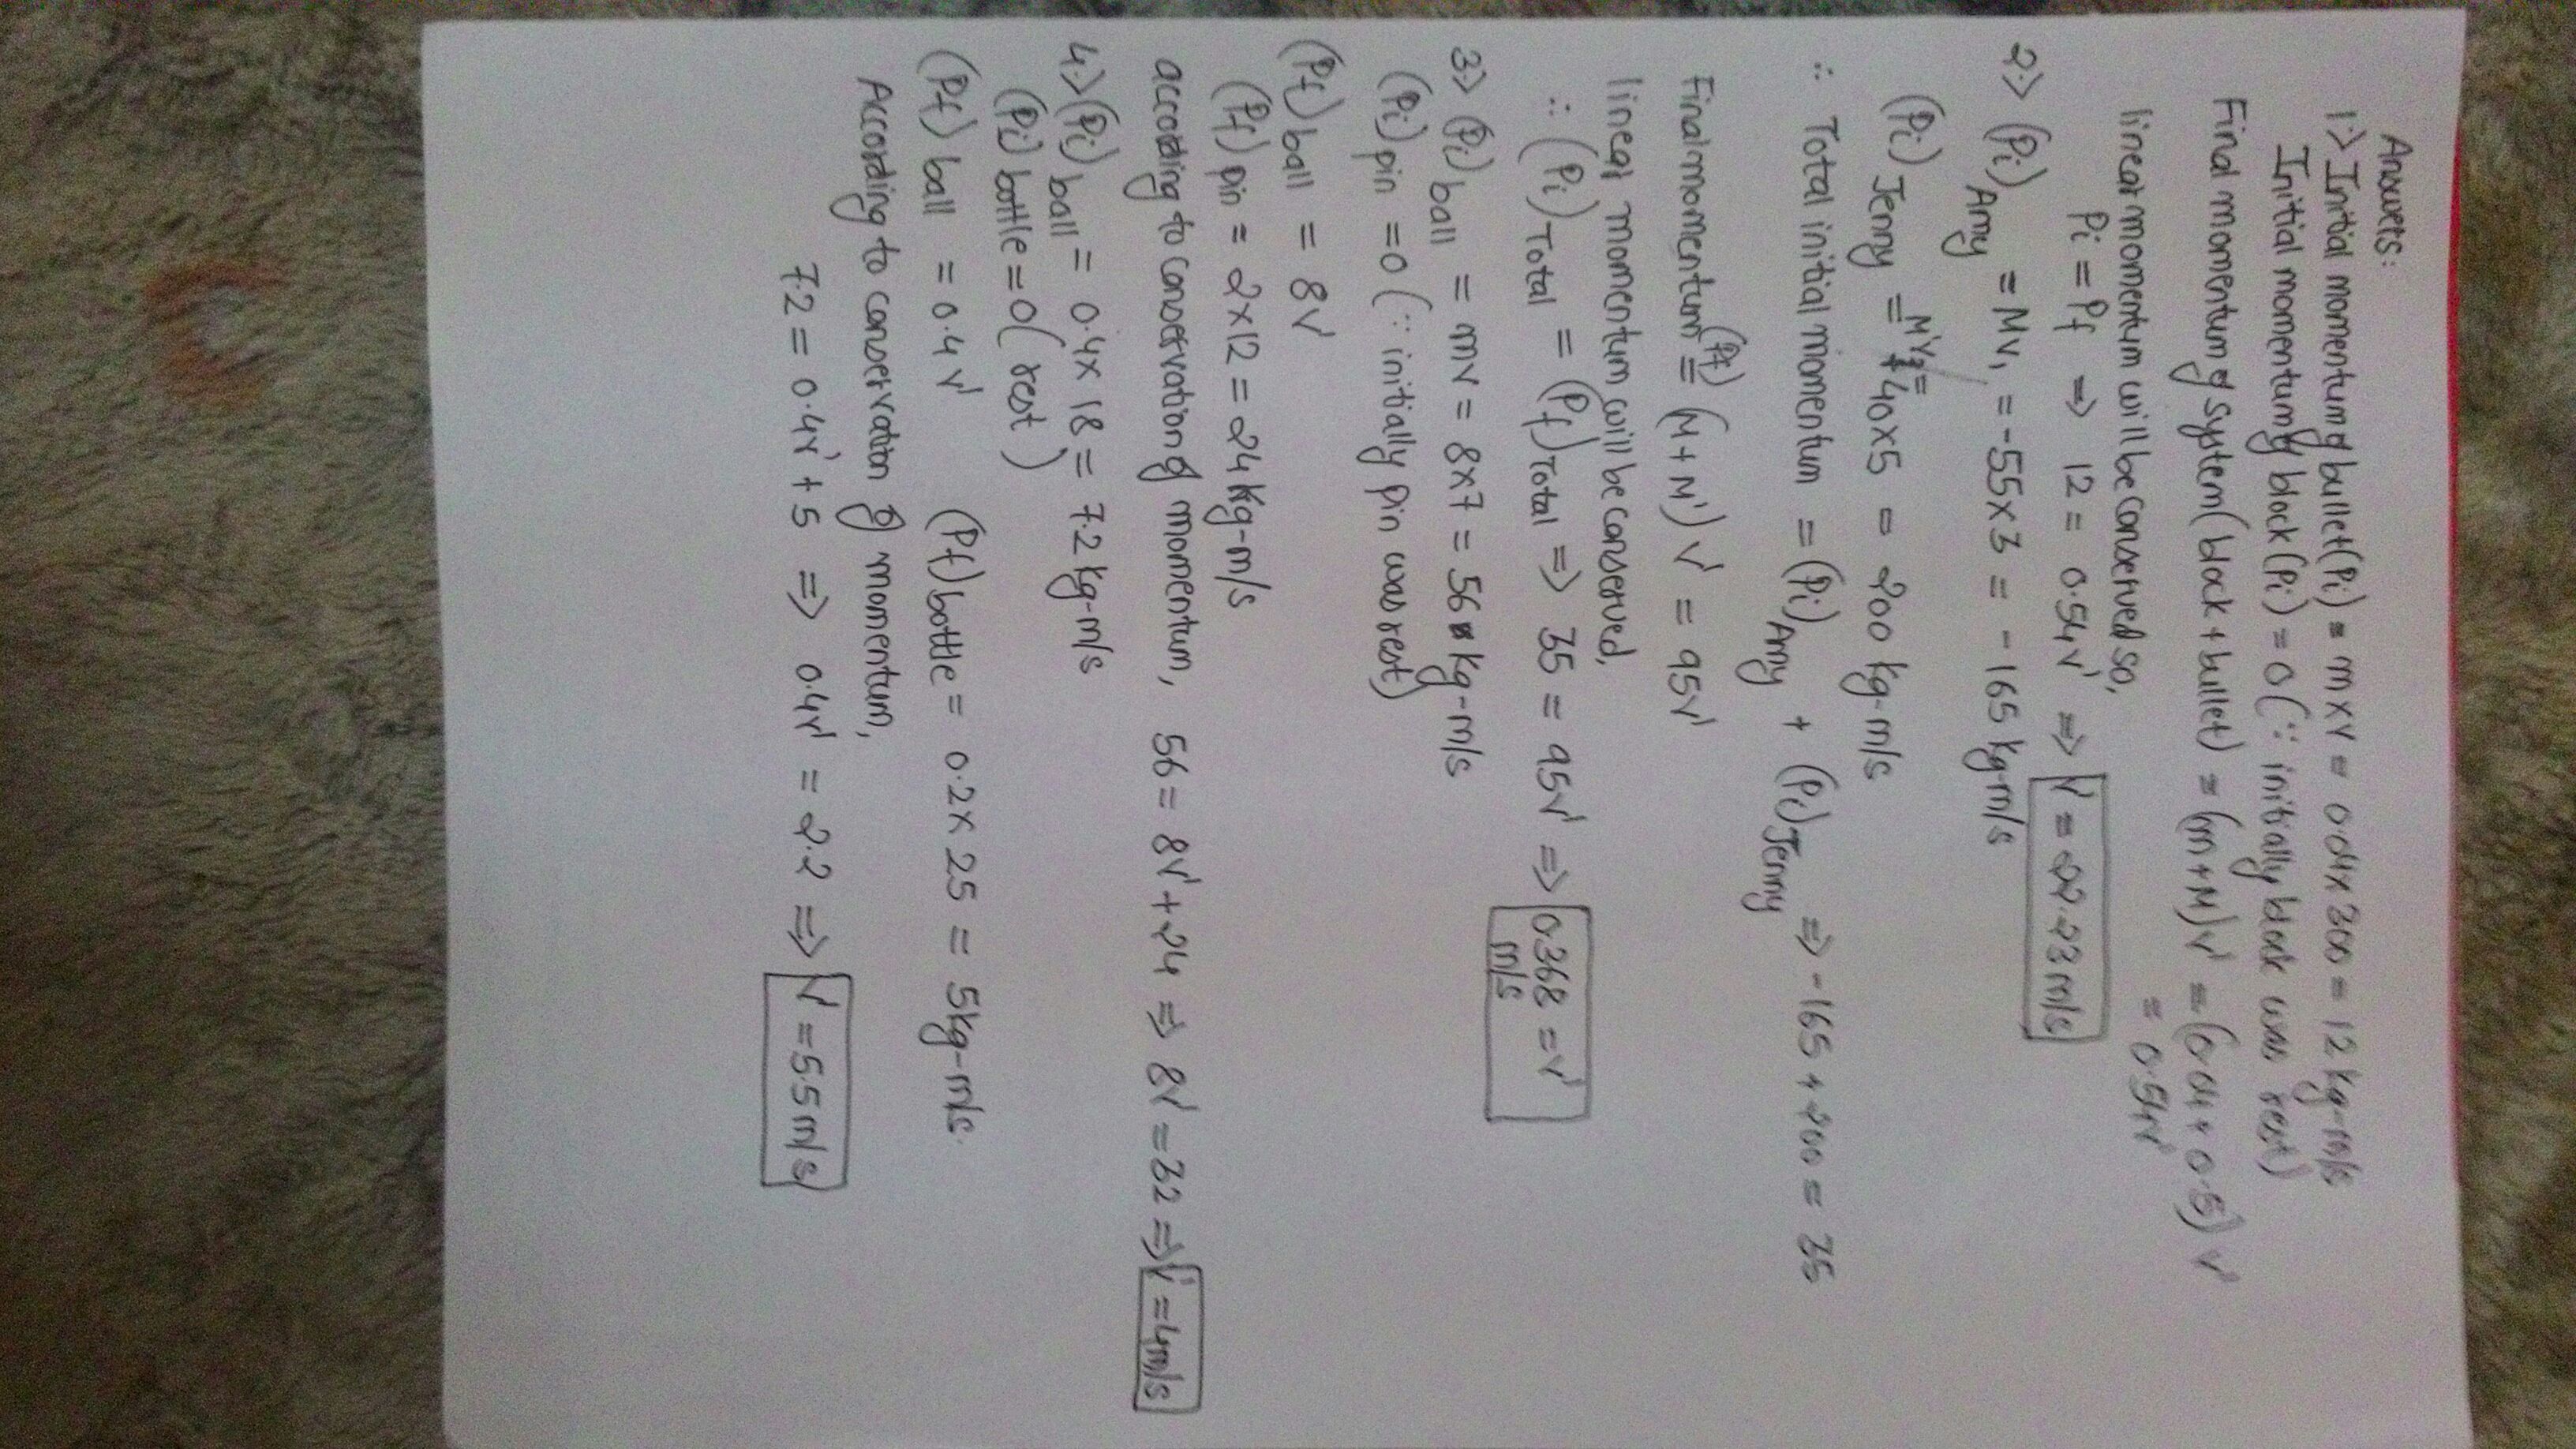 Answers:
1.> Initial momentum of bullet (Pi) = m x v = 0.04 x 300 = 12 kg-m/s
Initial momentum of block (Pi) = 0 (∵ initially block was rest)
Final momentum of system (block + bullet) = (m + M) v' = (0.04 + 0.5) v'
= 0.54v'
linear momentum will be conserved so,
Pi = Pf ⇒ 12 = 0.54v' ⇒ v' = 22.23 m/s
2.> (Pi) Amy = Mv₁ = -55x3 = -165 kg-m/s
(Pi) Jenny = M'v₂ = 40x5 = 200 kg-m/s
∴ Total initial momentum = (Pi) Amy + (Pi) Jenny ⇒ -165 + 200 = 35
Final momentum (Pf) = (M + M') v' = 95v'
linear momentum will be conserved,
∴ (Pi) Total = (Pf) Total ⇒ 35 = 95v' ⇒ 0.368 = v'
m/s
3> (Pi) ball = mv = 8x7 = 56 kg-m/s
(Pi) pin = 0 (∵ initially pin was rest)
(Pf) ball = 8v'
(Pf) pin = 2x12 = 24 kg-m/s
according to conservation of momentum, 56 = 8v' + 24 ⇒ 8v' = 32 ⇒ v' = 4m/s
4.> (Pi) ball = 0.4x 18 = 7.2 kg-m/s
(Pi) bottle = 0 (rest)
(Pf) ball = 0.4 v' (Pf) bottle = 0.2 x 25 = 5kg-m/s.
According to conservation of momentum,
7.2 = 0.4v' + 5 ⇒ 0.4v' = 2.2 ⇒ v' = 5.5 m/s